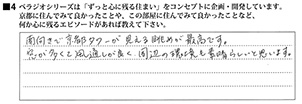 ■4 ベラジオシリーズは「ずっと心に残る住まい」をコンセプトに企画・開発しています。
京都に住んでみて良かったことや、この部屋に住んでみて良かったことなど、
何か心に残るエピソードがあれば教えて下さい。
南向きで京都タワーが見える眺めが最高です。
窓が多くて風通しが良く、周辺の環境も素晴らしいと思います。